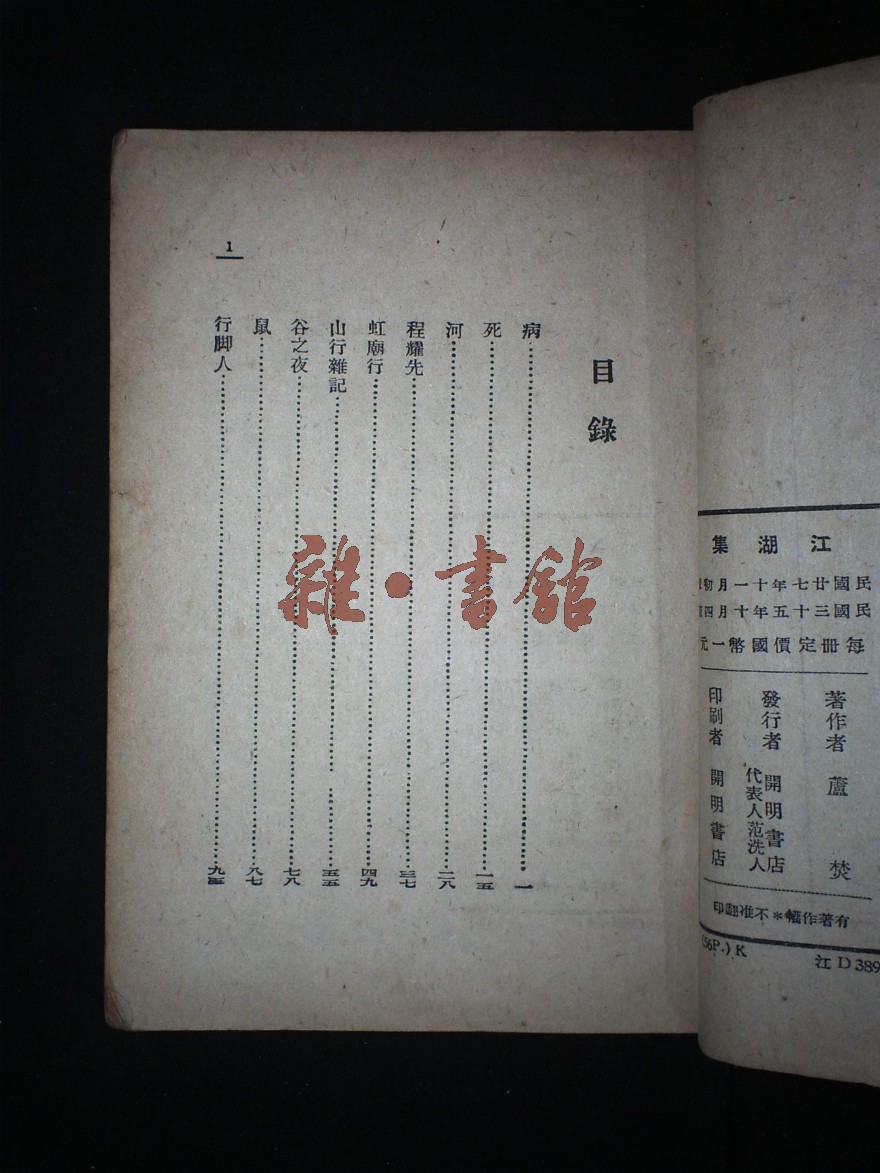 江湖集
民國廿七年十一月初
民國三十五年十月四
每冊定價國幣一元
著作者 蘆焚
發行者 開明書店
代表人范洗人
印刷者 開明書店
有著作權＊不准翻印
56P.) K
江 D 389
1
目錄
病……一
死……一五
河……二八
程耀先……三七
虹廟行……四九
山行雜記……五五
谷之夜……七八
鼠……八七
行脚人……
雜·書館